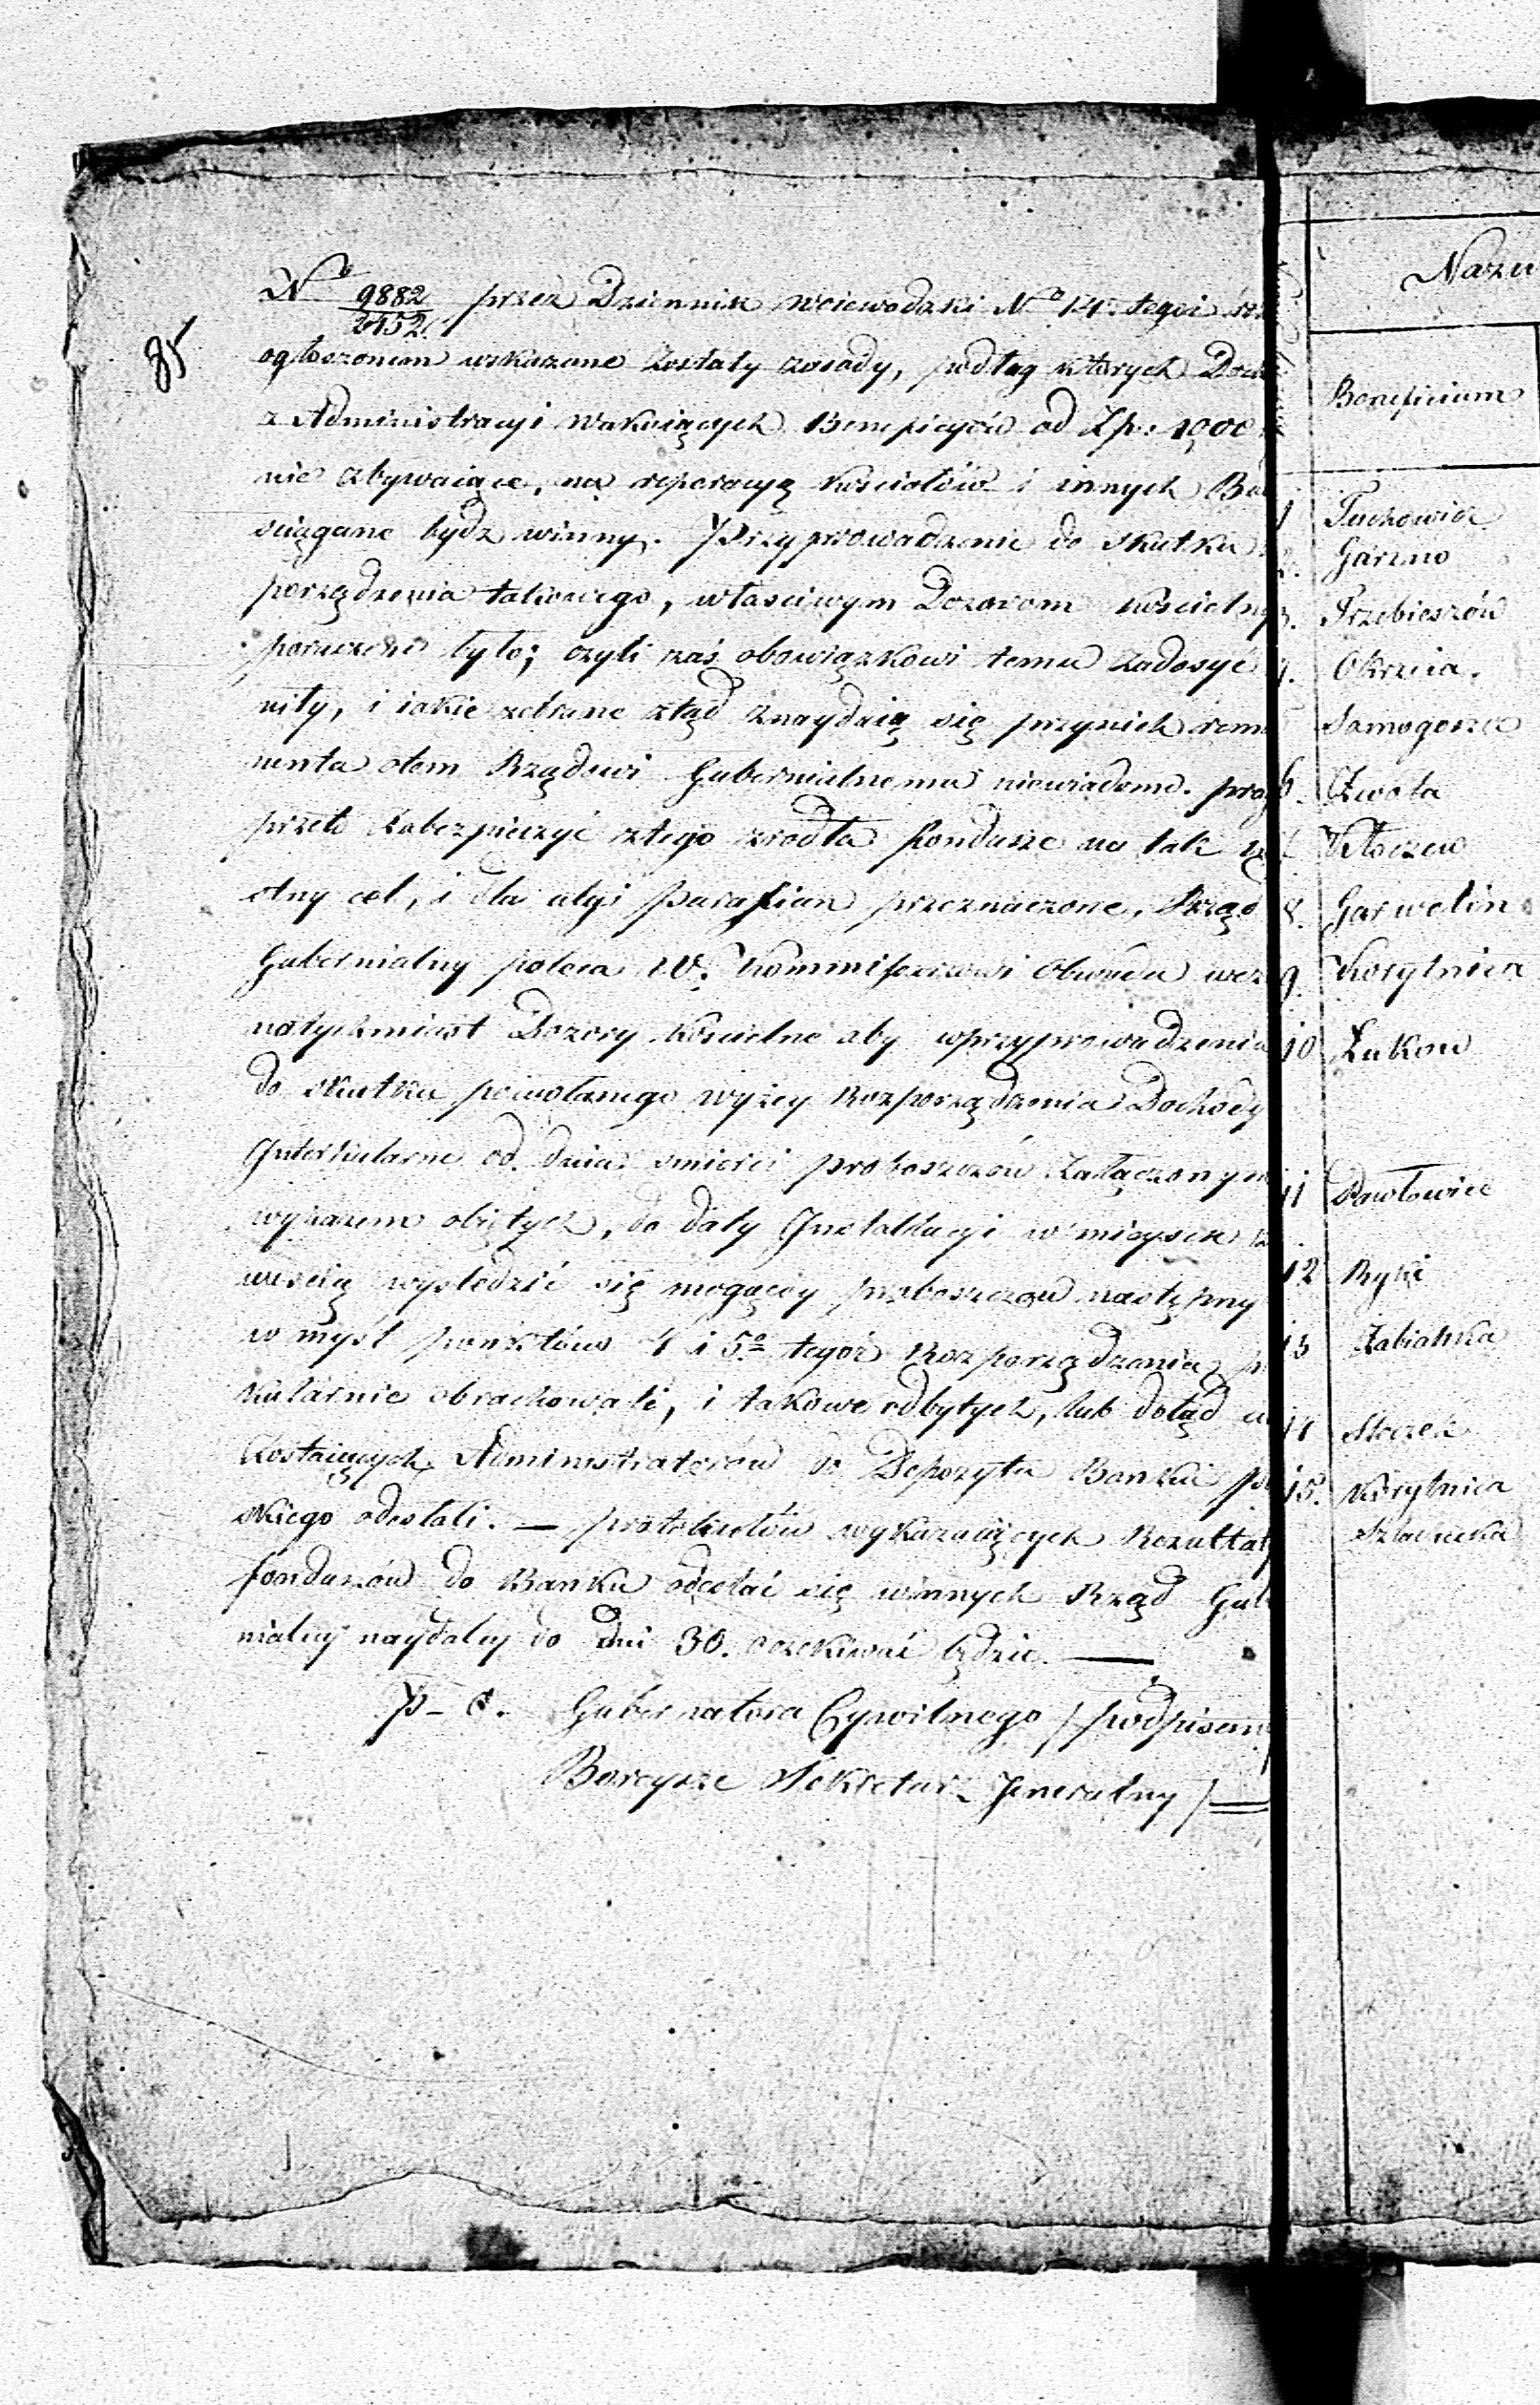 85
No 9882 przez Dziennik Woiewodzki No 14. tegoż
2452
ogłoszonem wskazane zostały zasady, podług których
z Administracyi wakuiących Beneficyów od Zp: 1000
nie zbywaiące, na reperacyą kościołów i innych
sciągane bydz winny. Przyprowadzenie do skutku
porządzenia takowego, właściwym Dozorom koscielny
poruczone było; czyli zaś obowiązkowi temu zadosyć
niły, i iakie zebrane ztąd znayduią się przynich rem
nenta otem Rządowi Gubernialnemu niewiadomo.
przeto zabezpieczyć ztego zrodła fundusze na tak
otny cel, i dla ulgi Parafian przeznaczone, Rząd
Gubernialny poleca W. Kommissarzowi Obwodu wez
natychmiast Dozory kościelne aby wprzyprowadzeniu
do skutku powołanego wyżey Rozporządzenia Dochody
Interkularne od dnia smierci proboszczów załączonym
wykazem obiętych, do daty Instalacyi w mieysce
wiscią wysledzić się mogącey proboszczów następny
w myśl punktów 4 i 5o tegoż Rozporządzenia
kularnie obrachowali, i takowe odbytych, lub dotąd
zostaiących Administratorów do Depozytu Banku
skiego odesłali. — protokułów wykazuiących Rezultat
funduszów do Banku odesłać się winnych Rząd Gub
nialny naydaley do dni 30. oczekiwać będzie. —
p. o. Gubernatora Cywilnego / podpisan
Sekretarz Jeneralny /
Nazw
Beneficium
1 Tuchowicz
2. Garzno
3. Trzebieszów
4. Okrzeia.
Samogoszcz
6. Zwola
Kłoczew
8. Garwolin
9. Korytnica
10 Łukow
11 Pawłowice
12 Ryki
13 Żabianka
14 Stoczek
15. Korytnica
Szlachecka